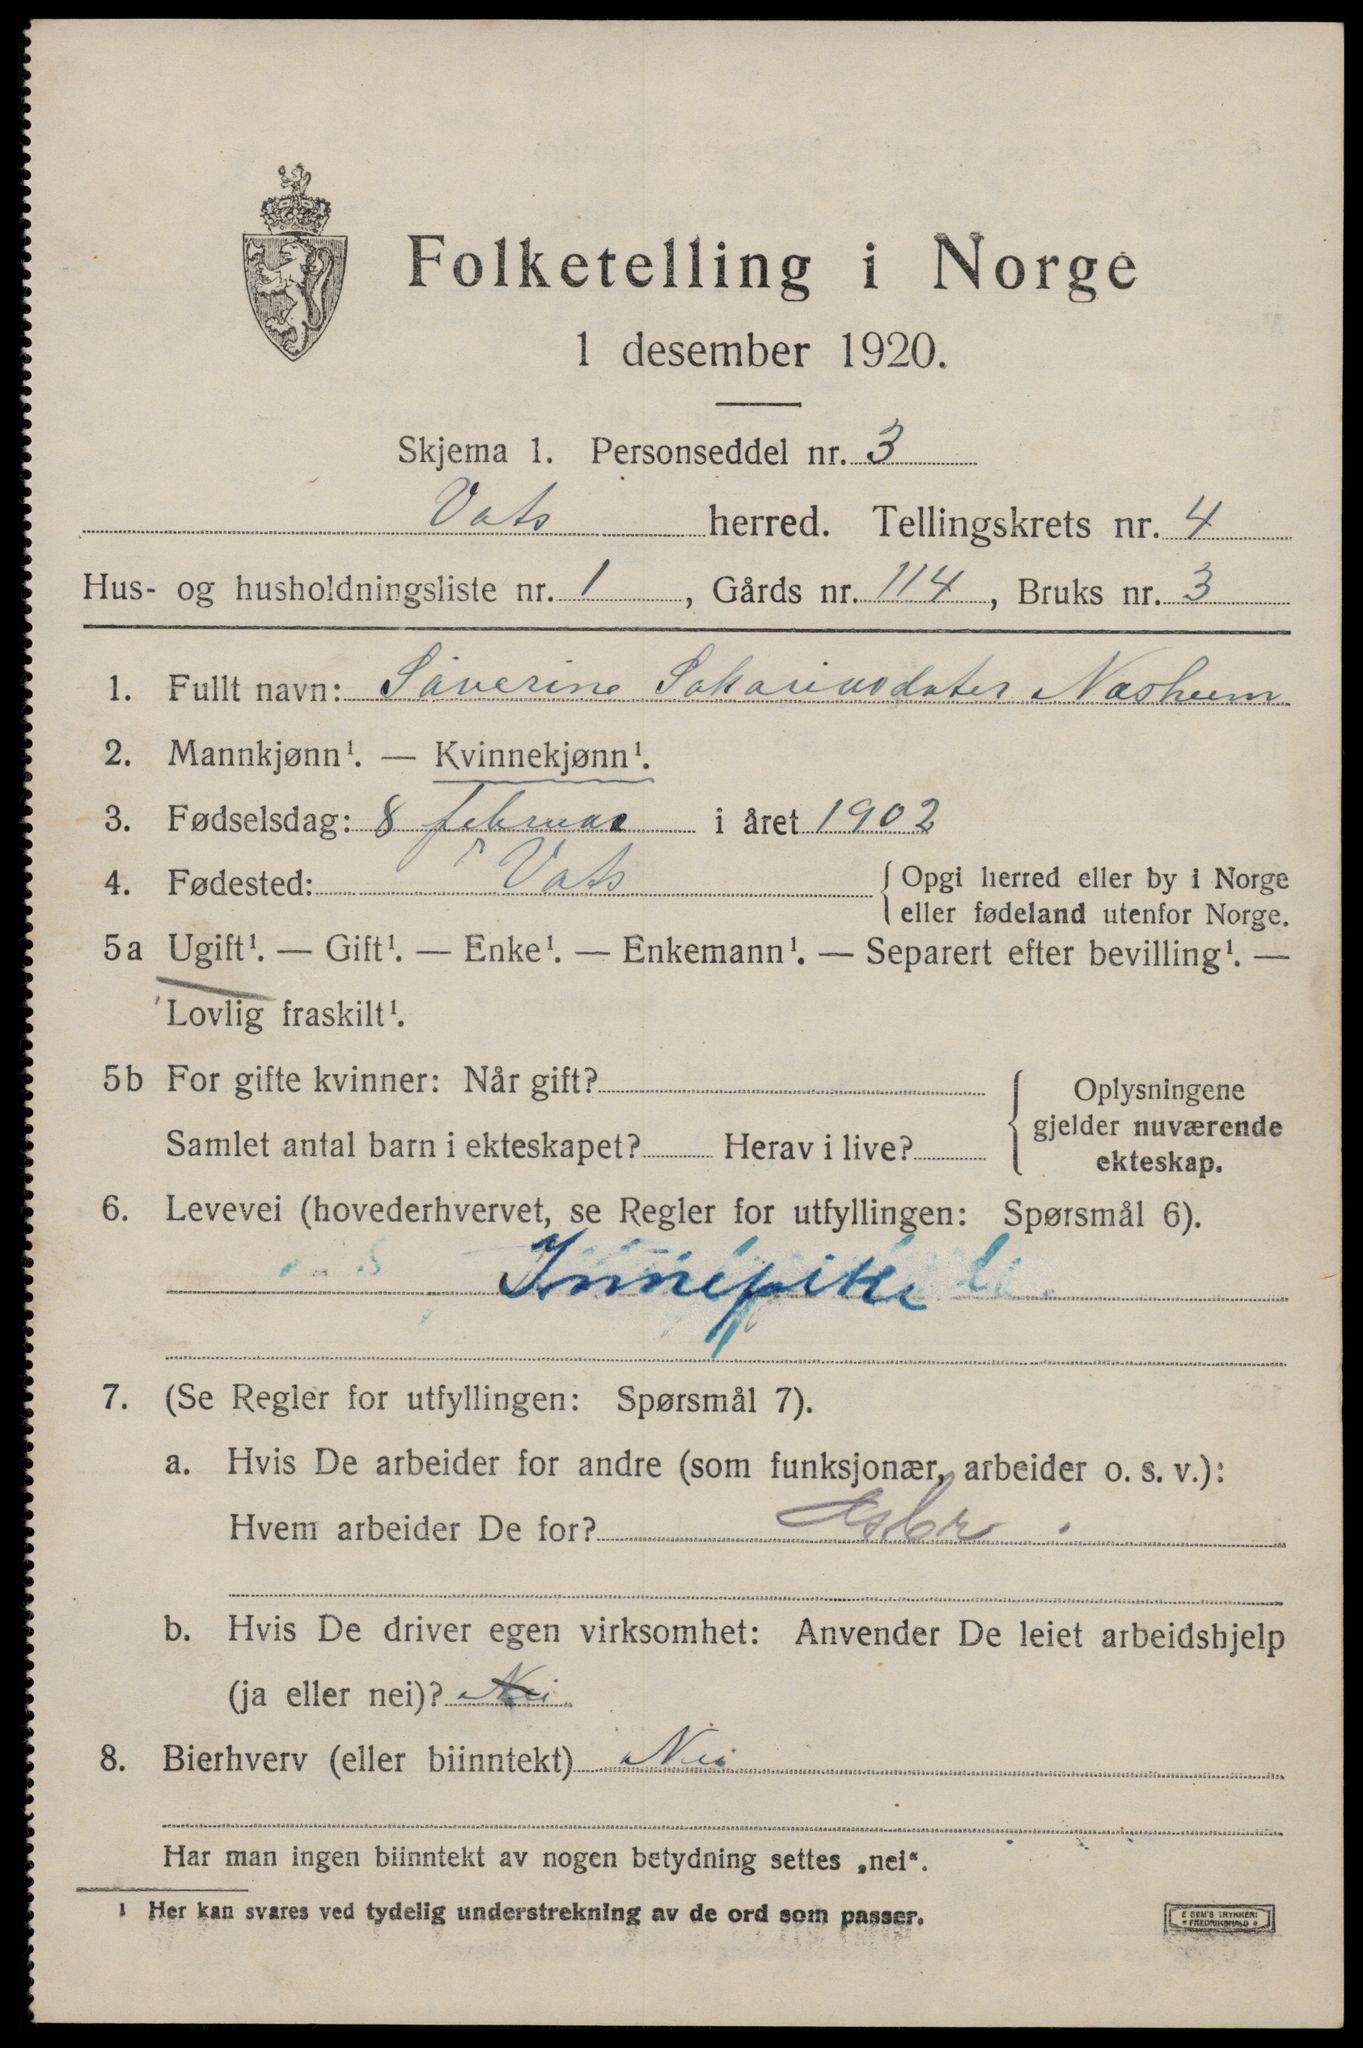 Folketelling i Norge
1 desember 1920.
Skjema 1. Personseddel nr. 3
Vats herred. Tellingskrets nr. 4
Hus- og husholdningsliste nr. 1, Gårds nr. 114, Bruks nr. 3
1. Fullt navn: Saverine Sakariasdater Næsheim
2. Mannkjønn¹. — Kvinnekjønn¹.
3. Fødselsdag: 8 februar i året 1902
4. Fødested: Vats { Opgi herred eller by i Norge
eller fødeland utenfor Norge.
5a Ugift¹. — Gift¹. — Enke¹. — Enkemann¹. — Separert efter bevilling¹. —
Lovlig fraskilt¹.
5b For gifte kvinner: Når gift? { Oplysningene
gjelder nuværende
ekteskap.
Samlet antal barn i ekteskapet? Herav i live?
6. Levevei (hovederhvervet, se Regler for utfyllingen: Spørsmål 6).
Innepike
7. (Se Regler for utfyllingen: Spørsmål 7).
a. Hvis De arbeider for andre (som funksjonær, arbeider o. s. v.):
Hvem arbeider De for?
b. Hvis De driver egen virksomhet: Anvender De leiet arbeidshjelp
(ja eller nei)? Nei
8. Bierhverv (eller biinntekt) Nei
Har man ingen biinntekt av nogen betydning settes „nei“.
1 Her kan svares ved tydelig understrekning av de ord som passer.
E SEM'S TRYKKERI
FREDRIKSHALD